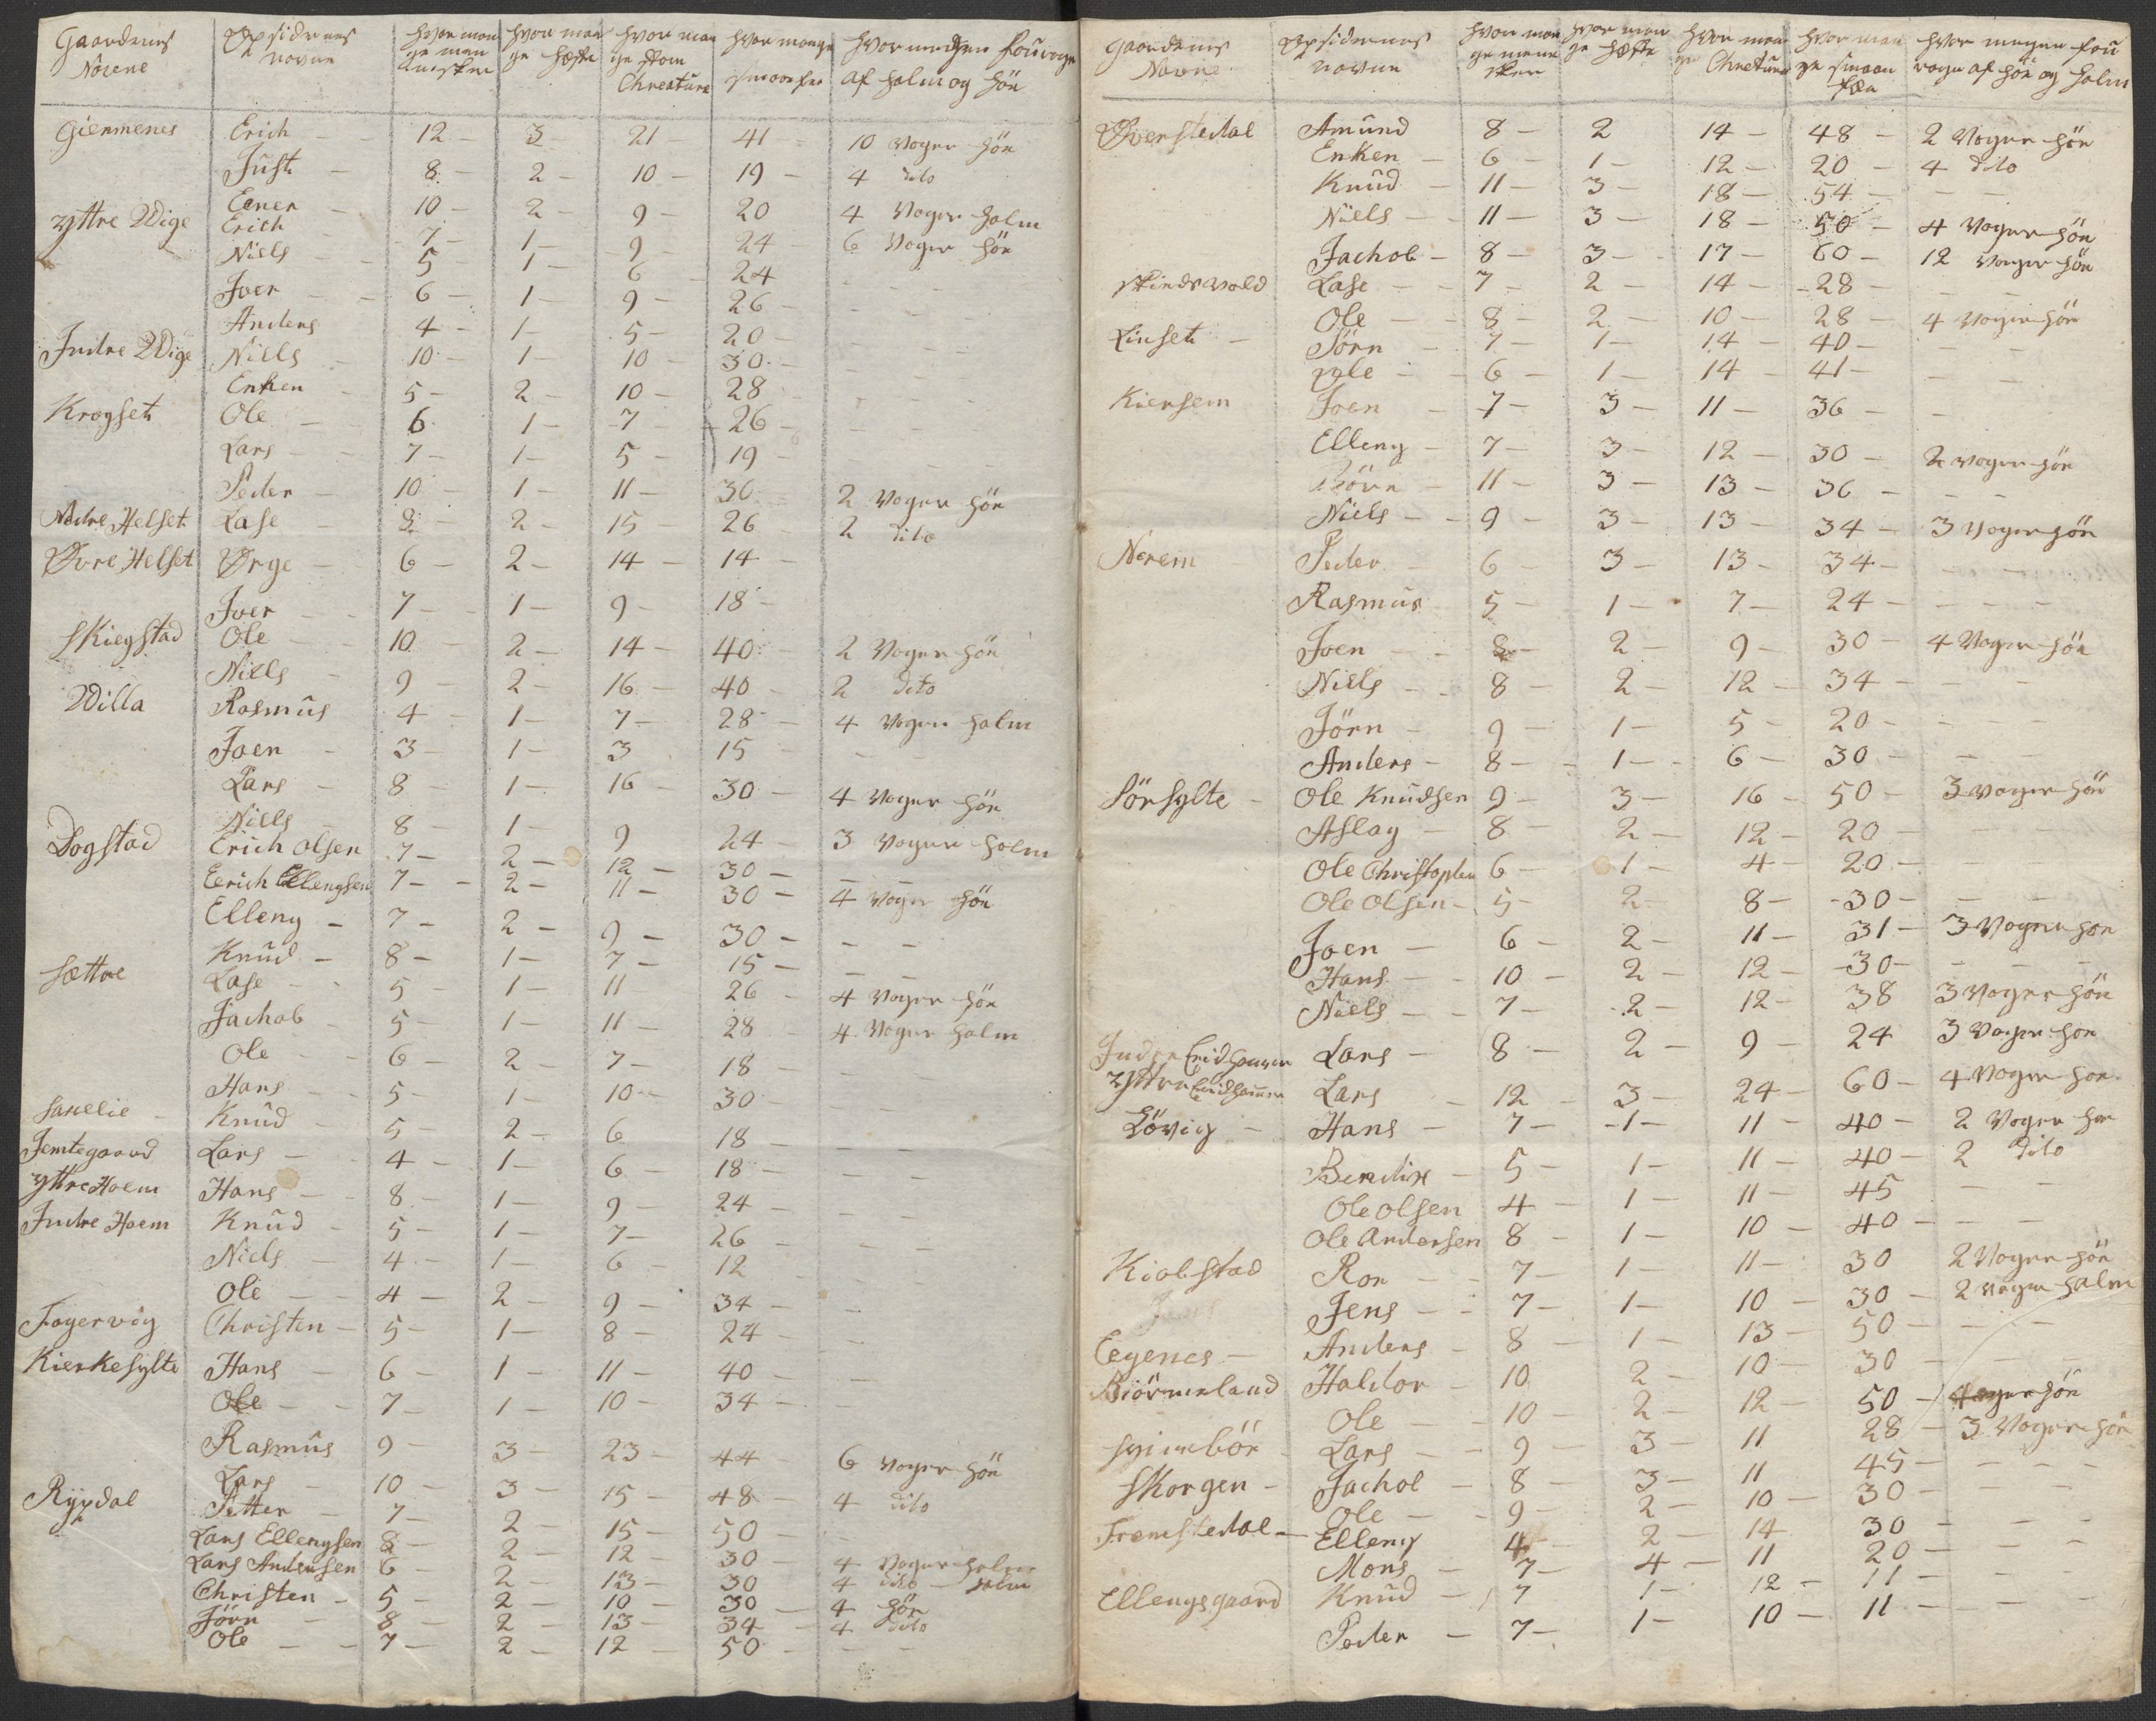 Gaardenes Nòvene | Opsidernes novne | hvor man ge men nisker | hvor man ge hæste | hvor man ge stom Chreatura | hvor mange smaa fee | hvor megen fourage af halm og hön
Gienmenes | Erich | 12 | 3 | 21 | 41 | 10 Voger hön
Just | 8 | 2 | 10 | 19 | 4 dito
Eener | 10 | 2 | 9 | 20 | 4 Voger halm
yttre Wige | Erich | 7 | 1 | 9 | 24 | 6 Voger hön
Niels | 5 | 1 | 6 | 24 | - -
Joen | 6 | 1 | 9 | 26 | - -
Anders | 4 | 1 | 5 | 20 | - -
Indre Wige | Niels | 10 | 1 | 10 | 30 | - -
Enken | 5 | 2 | 10 | 28 | - -
Krogset | Ole | 6 | 1 | 7 | 26 | - -
Lars | 7 | 1 | 5 | 19 | - -
Peder | 10 | 1 | 11 | 36 | 2 Voger hön
Nedre Helset | Lase | 8 | 2 | 15 | 26 | 2 dito
Øvre Helset | Ørge | 6 | 2 | 14 | 14
Iver | 7 | 1 | 9 | 18
Skiegstad | Ole | 10 | 2 | 14 | 40 | 2 Voger hön
Niels | 9 | 2 | 16 | 40 | 2 dito
Willa | Rasmus | 4 | 1 | 7 | 28 | 4 Voger halm
Joen | 3 | 1 | 3 | 15 | - -
Lars | 8 | 1 | 16 | 30 | 4 Voger hön
Niels | 8 | 1 | 9 | 24 | 3 Voger halm
Dogstad | Erich Olsen | 7 | 2 | 12 | 30 | - -
Eerich Ellengsen | 7 | 2 | 11 | 30 | 4 Voger hön
Elleng | 7 | 2 | 9 | 30 | - -
Knud | 8 | 1 | 7 | 15 | - -
Sættre | Lase | 5 | 1 | 11 | 26 | 4 Voger hön
Jachob | 5 | 1 | 11 | 28 | 4 Voger halm
Ole | 6 | 2 | 7 | 18 | -
Hans | 5 | 1 | 10 | 30 | - -
Sanelie | Knud | 5 | 2 | 6 | 18 | - -
Jemtegaard | Lars | 4 | 1 | 6 | 18 | - -
yttre Hoem | Hans | 8 | 1 | 9 | 24 | - -
Indre Hoem | Knud | 5 | 1 | 7 | 26 | - -
Niels | 4 | 1 | 6 | 12 | -
Ole | 4 | 2 | 9 | 34 | -
Fogervög | Christen | 5 | 1 | 8 | 24 | -
Kierkesylte | Hans | 6 | 1 | 11 | 40 | -
Ole | 7 | 1 | 10 | 34 | -
Rasmus | 9 | 3 | 23 | 44 | 6 Voger hön
Lars | 10 | 3 | 15 | 48 | 4 dito
Rÿpdal | Petter | 7 | 2 | 15 | 50 | -
Lars Ellengsen | 8 | 2 | 12 | 30 | 4 Voger halm
Lars Andersen | 6 | 2 | 13 | 30 | 4 dito halm
Christen | 5 | 2 | 10 | 30 | 4 hön
Jörn | 8 | 2 | 13 | 34 | 4 dito
Ole | 7 | 2 | 12 | 50 | - -
Gaardenes Novne | Opsidernes novne | hvor man ge menne sker | hvor man ge hæste | hvor man ge Chreatura | hvor man ge smaa fæe | hvor megen fou rage af hön og halm
Øverstedal | Amund | 8 | 2 | 14 | 48 | 2 Voger hön
Enken | 6 | 1 | 12 | 20 | 4 dito
Knud | 11 | 3 | 18 | 54 | - -
Niels | 11 | 3 | 18 | 50 | 4 Voger hön
Jachob | 8 | 3 | 17 | 60 | 12 Voger hön
Skindsvold | Lase | 7 | 2 | 14 | 28 | - -
Ole | 8 | 2 | 10 | 28 | 4 Voger hön
Linset | Jörn | 7 | 1 | 14 | 40 | - -
Ole | 6 | 1 | 14 | 41 | - -
Kiersem | Joen | 7 | 3 | 11 | 36 | -
Elleng | 7 | 3 | 12 | 30 | 2 Voger hön
Börn | 11 | 3 | 13 | 36 | - -
Niels | 9 | 3 | 13 | 34 | 3 Voger hön
Nerem | Peder | 6 | 3 | 13 | 34 | - -
Rasmus | 5 | 1 | 7 | 24 | - - -
Joen | 8 | 2 | 9 | 30 | 4 Voger hön
Niels | 8 | 2 | 12 | 34 | - -
Jörn | 9 | 1 | 5 | 20 | - - -
Anders | 8 | 1 | 6 | 30 | -
Sörsylte | Ole Knudsen | 9 | 3 | 16 | 50 | 3 Voger hön
Aslag | 8 | 2 | 12 | 20 | - -
Ole Christophen | 6 | 1 | 4 | 20 | -
Ole Olsen | 5 | 2 | 8 | 30 | - -
Joen | 6 | 2 | 11 | 31 | 3 Vogen hön
Hans | 10 | 2 | 12 | 30 | - - -
Niels | 7 | 2 | 12 | 38 | 3 Voger hön
Indre Eidhamer | Lars | 8 | 2 | 9 | 24 | 3 Voger hön
yttre Eidhamer | Lars | 12 | 3 | 24 | 60 | 4 Voger hön
Lövig | Hans | 7 | 1 | 11 | 40 | 2 Voger hön
Bendix | 5 | 1 | 11 | 40 | 2 dito
Ole Olsen | 4 | 1 | 11 | 45 | - -
Ole Andersen | 8 | 1 | 10 | 40 | - -
Kiolstad | Ron | 7 | 1 | 11 | 30 | 2 Voger hön
Jens | 7 | 1 | 10 | 30 | 2 Voger halm
Eegenes | Anders | 8 | 1 | 13 | 50 | - -
Biörmeland | Haldor | 10 | 2 | 10 | 30 | - -
Ole | 10 | 2 | 12 | 50 | 4 Voger hön
Lars | 9 | 3 | 11 | 28 | 3 Voger hön
Skorgen | Jachob | 8 | 3 | 11 | 45 | - - -
Ole | 9 | 2 | 10 | 30 | - -
Fremstedal | Elleng | 4 | 2 | 14 | 30 | - -
Mons | 7 | 4 | 11 | 20 | - -
Ellengsgaard | Knud | 7 | 1 | 12 | 11 | - -
Peder | 7 | 1 | 10 | 11 | - -